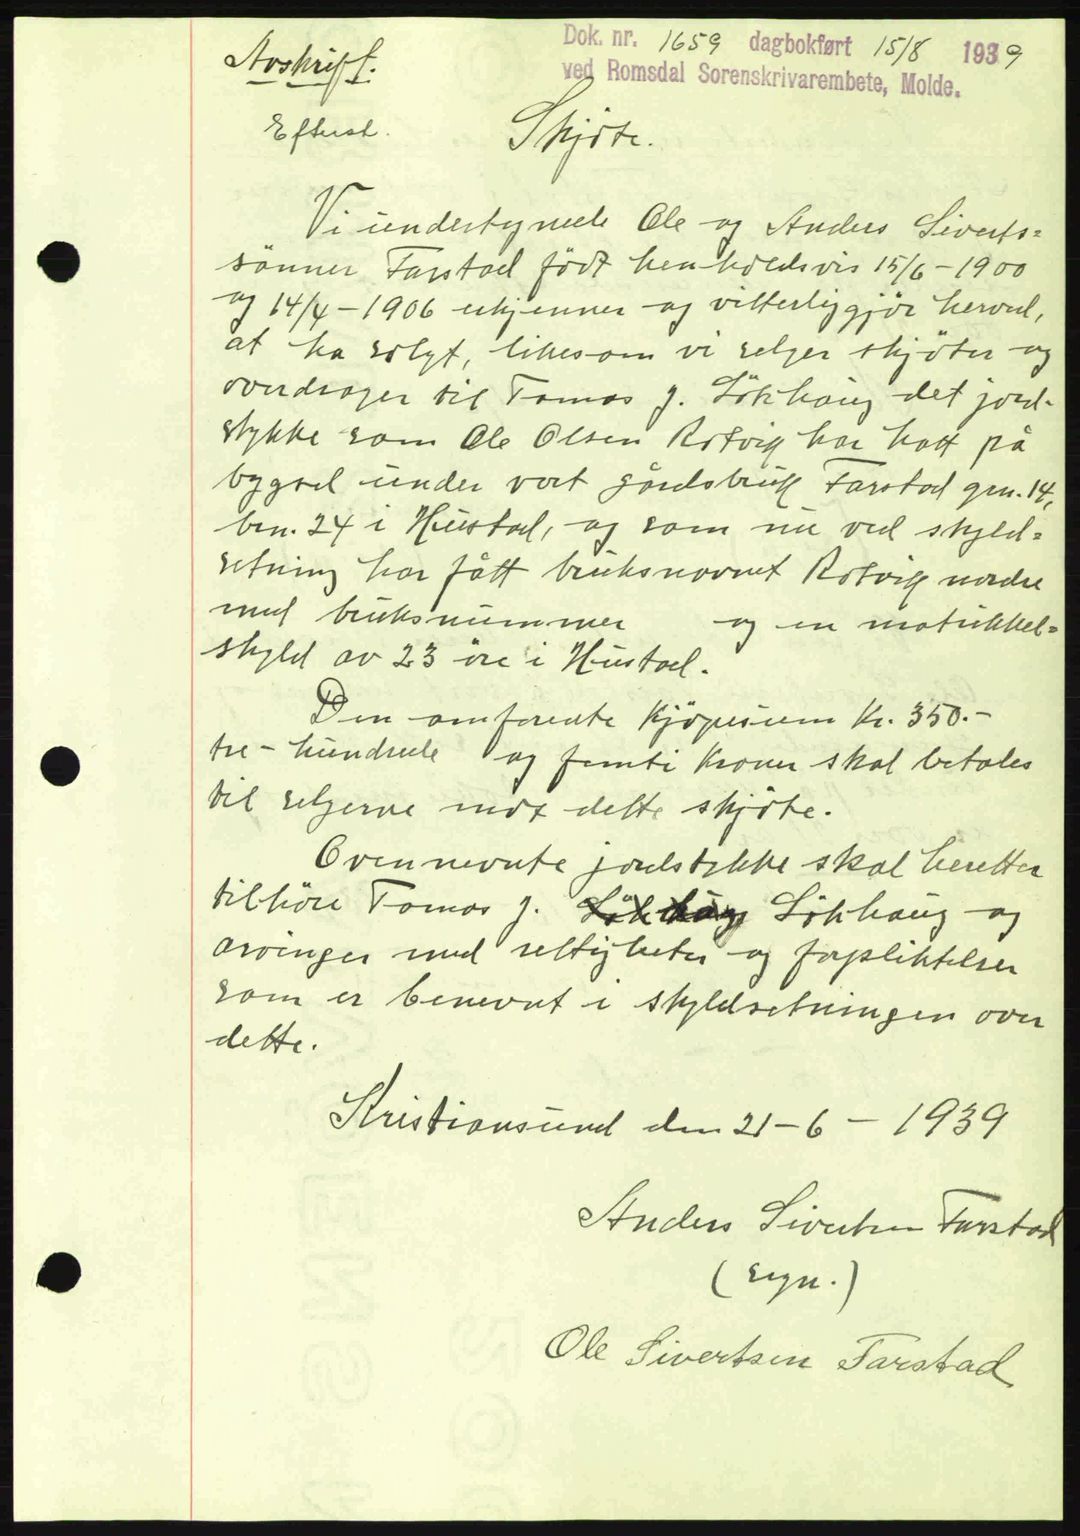 Avskrift.
Dok. nr. 1659 dagbokført 15/8 1939
ved Romsdal Sorenskrivarembete, Molde.
Efterst.
Skjöte.
Vi undertegnede Ole og Anders Siverts=
sönner Farstad födt henholdsvis 15/6-1900
og 14/4-1906 erkjenner og vitterliggjör herved,
at ha solgt, likesom vi selger skjöter og
overdrager til Tomas J. Sökhaug det jord-
stykke som Ole Olsen Rotvik har hatt på
bygsel under vort gårdsbruk Farstad grn. 14,
brn. 24 i Hustad, og som nu ved skyld=
setning har fått bruksnavnet Rotvik nordre
med bruksnummer og en matrikkel=
skyld av 23 öre i Hustad.
Den omforente kjöpesum Kr. 350.-
tre-hundrede og femti Kroner skal betales
til selgerne mot dette skjöte.
Ovennevnte jordstykke skal herefter
tilhöre Tomas J. Sökhaug og
arvinger med rettigheter og forpliktelser
som er benevnt i skyldsetningen over
dette.
Kristiansund den 21-6-1939
Anders Sivertsen Farstad
(sign.)
Ole Sivertsen Farstad